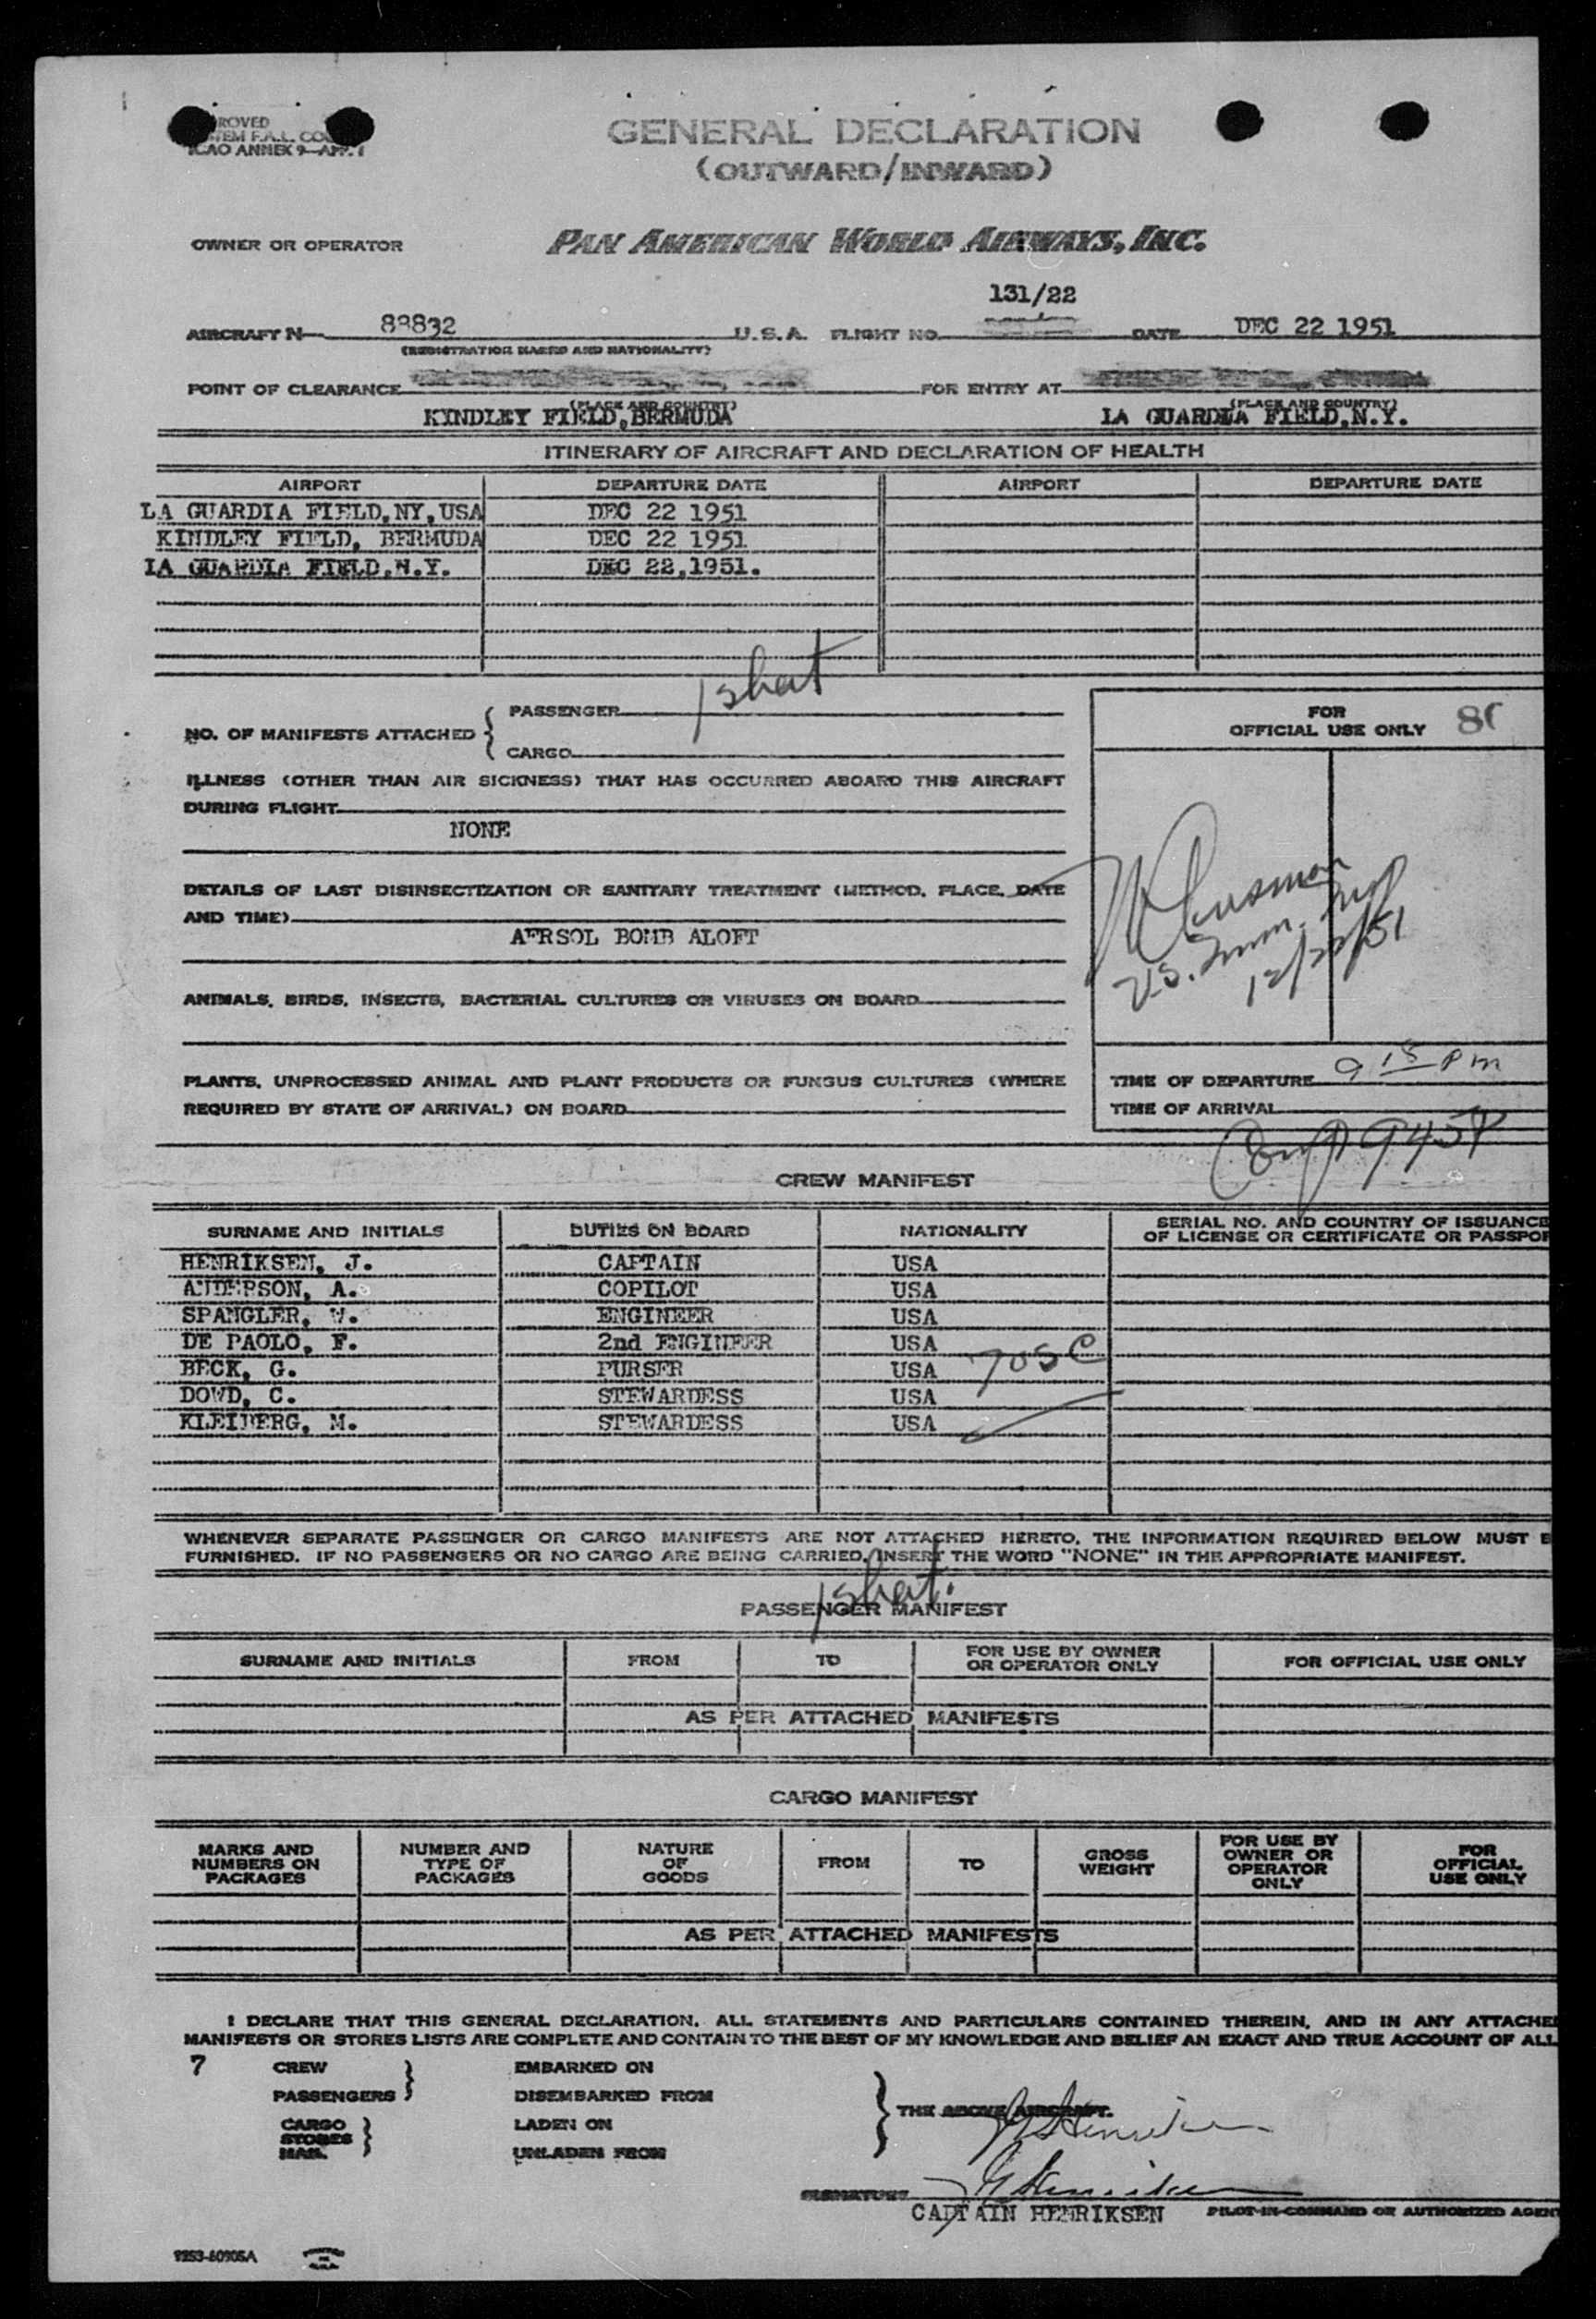 ROVED
TEM F.A.L. CO
ICAO ANNEX 9-APP. 1
GENERAL DECLARATION
(OUTWARD/INWARD)
OWNER OR OPERATOR PAN AMERICAN WORLD AIRWAYS, INC.
131/22
AIRCRAFT N 88832 U.S.A. FLIGHT NO. DATE DEC 22 1951
(REGISTRATION MARKS AND NATIONALITY)
POINT OF CLEARANCE FOR ENTRY AT
(PLACE AND COUNTRY) (PLACE AND COUNTRY)
KINDLEY FIELD, BERMUDA LA GUARDIA FIELD, N.Y.
ITINERARY OF AIRCRAFT AND DECLARATION OF HEALTH
AIRPORT DEPARTURE DATE AIRPORT DEPARTURE DATE
LA GUARDIA FIELD, NY, USA DEC 22 1951
KINDLEY FIELD, BERMUDA DEC 22 1951
LA GUARDIA FIELD, N.Y. DEC 22, 1951.
1 shat
NO. OF MANIFESTS ATTACHED { PASSENGER
CARGO
FOR
OFFICIAL USE ONLY
ILLNESS (OTHER THAN AIR SICKNESS) THAT HAS OCCURRED ABOARD THIS AIRCRAFT
DURING FLIGHT
NONE
DETAILS OF LAST DISINSECTIZATION OR SANITARY TREATMENT (METHOD, PLACE, DATE
AND TIME)
AERSOL BOMB ALOFT
U.S. Imm. Insp
12/22/51
ANIMALS, BIRDS, INSECTS, BACTERIAL CULTURES OR VIRUSES ON BOARD
PLANTS, UNPROCESSED ANIMAL AND PLANT PRODUCTS OR FUNGUS CULTURES (WHERE
REQUIRED BY STATE OF ARRIVAL) ON BOARD
TIME OF DEPARTURE 9 15 PM
TIME OF ARRIVAL
945P
CREW MANIFEST
SURNAME AND INITIALS DUTIES ON BOARD NATIONALITY SERIAL NO. AND COUNTRY OF ISSUANCE
OF LICENSE OR CERTIFICATE OR PASSPOR
HENRIKSEN, J. CAPTAIN USA
ANDERSON, A. COPILOT USA
SPANGLER, W. ENGINEER USA
DE PAOLO, F. 2nd ENGINEER USA
BECK, G. PURSER USA 705C
DOWD, C. STEWARDESS USA
KLEINBERG, M. STEWARDESS USA
WHENEVER SEPARATE PASSENGER OR CARGO MANIFESTS ARE NOT ATTACHED HERETO, THE INFORMATION REQUIRED BELOW MUST B
FURNISHED. IF NO PASSENGERS OR NO CARGO ARE BEING CARRIED, INSERT THE WORD "NONE" IN THE APPROPRIATE MANIFEST.
1 shat.
PASSENGER MANIFEST
SURNAME AND INITIALS FROM TO FOR USE BY OWNER
OR OPERATOR ONLY FOR OFFICIAL USE ONLY
AS PER ATTACHED MANIFESTS
CARGO MANIFEST
MARKS AND
NUMBERS ON
PACKAGES NUMBER AND
TYPE OF
PACKAGES NATURE
OF
GOODS FROM TO GROSS
WEIGHT FOR USE BY
OWNER OR
OPERATOR
ONLY FOR
OFFICIAL
USE ONLY
AS PER ATTACHED MANIFESTS
I DECLARE THAT THIS GENERAL DECLARATION, ALL STATEMENTS AND PARTICULARS CONTAINED THEREIN, AND IN ANY ATTACHE
MANIFESTS OR STORES LISTS ARE COMPLETE AND CONTAIN TO THE BEST OF MY KNOWLEDGE AND BELIEF AN EXACT AND TRUE ACCOUNT OF ALL
7 CREW EMBARKED ON
PASSENGERS DISEMBARKED FROM
THE ABOVE AIRCRAFT.
CARGO LADEN ON
STORES
MAIL UNLADEN FROM
J Henriksen
SIGNATURE J Henriksen
CAPTAIN HENRIKSEN PILOT-IN-COMMAND OR AUTHORIZED AGENT
9253-60905A